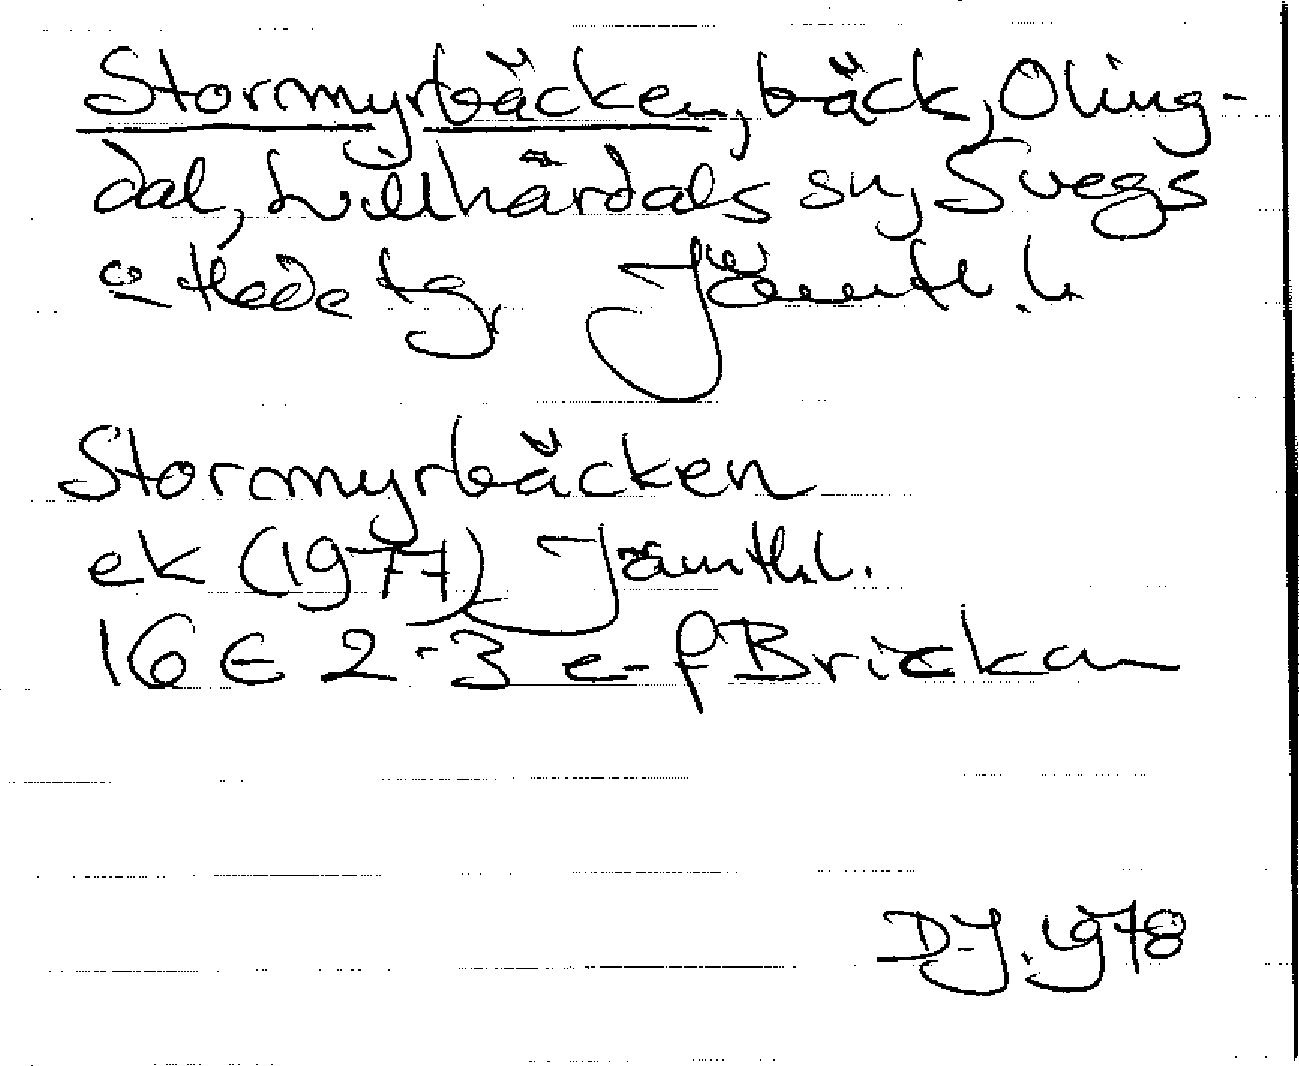 Stormyrbäcken, bäck, Oling-
dal, Lillhärdals sn, Svegs
o Hede tg, Jämtl. l.
Stormyrbäcken
ek (1977) Jämtl.l.
16 E 2-3 e-f Brickan
D-J. 1978